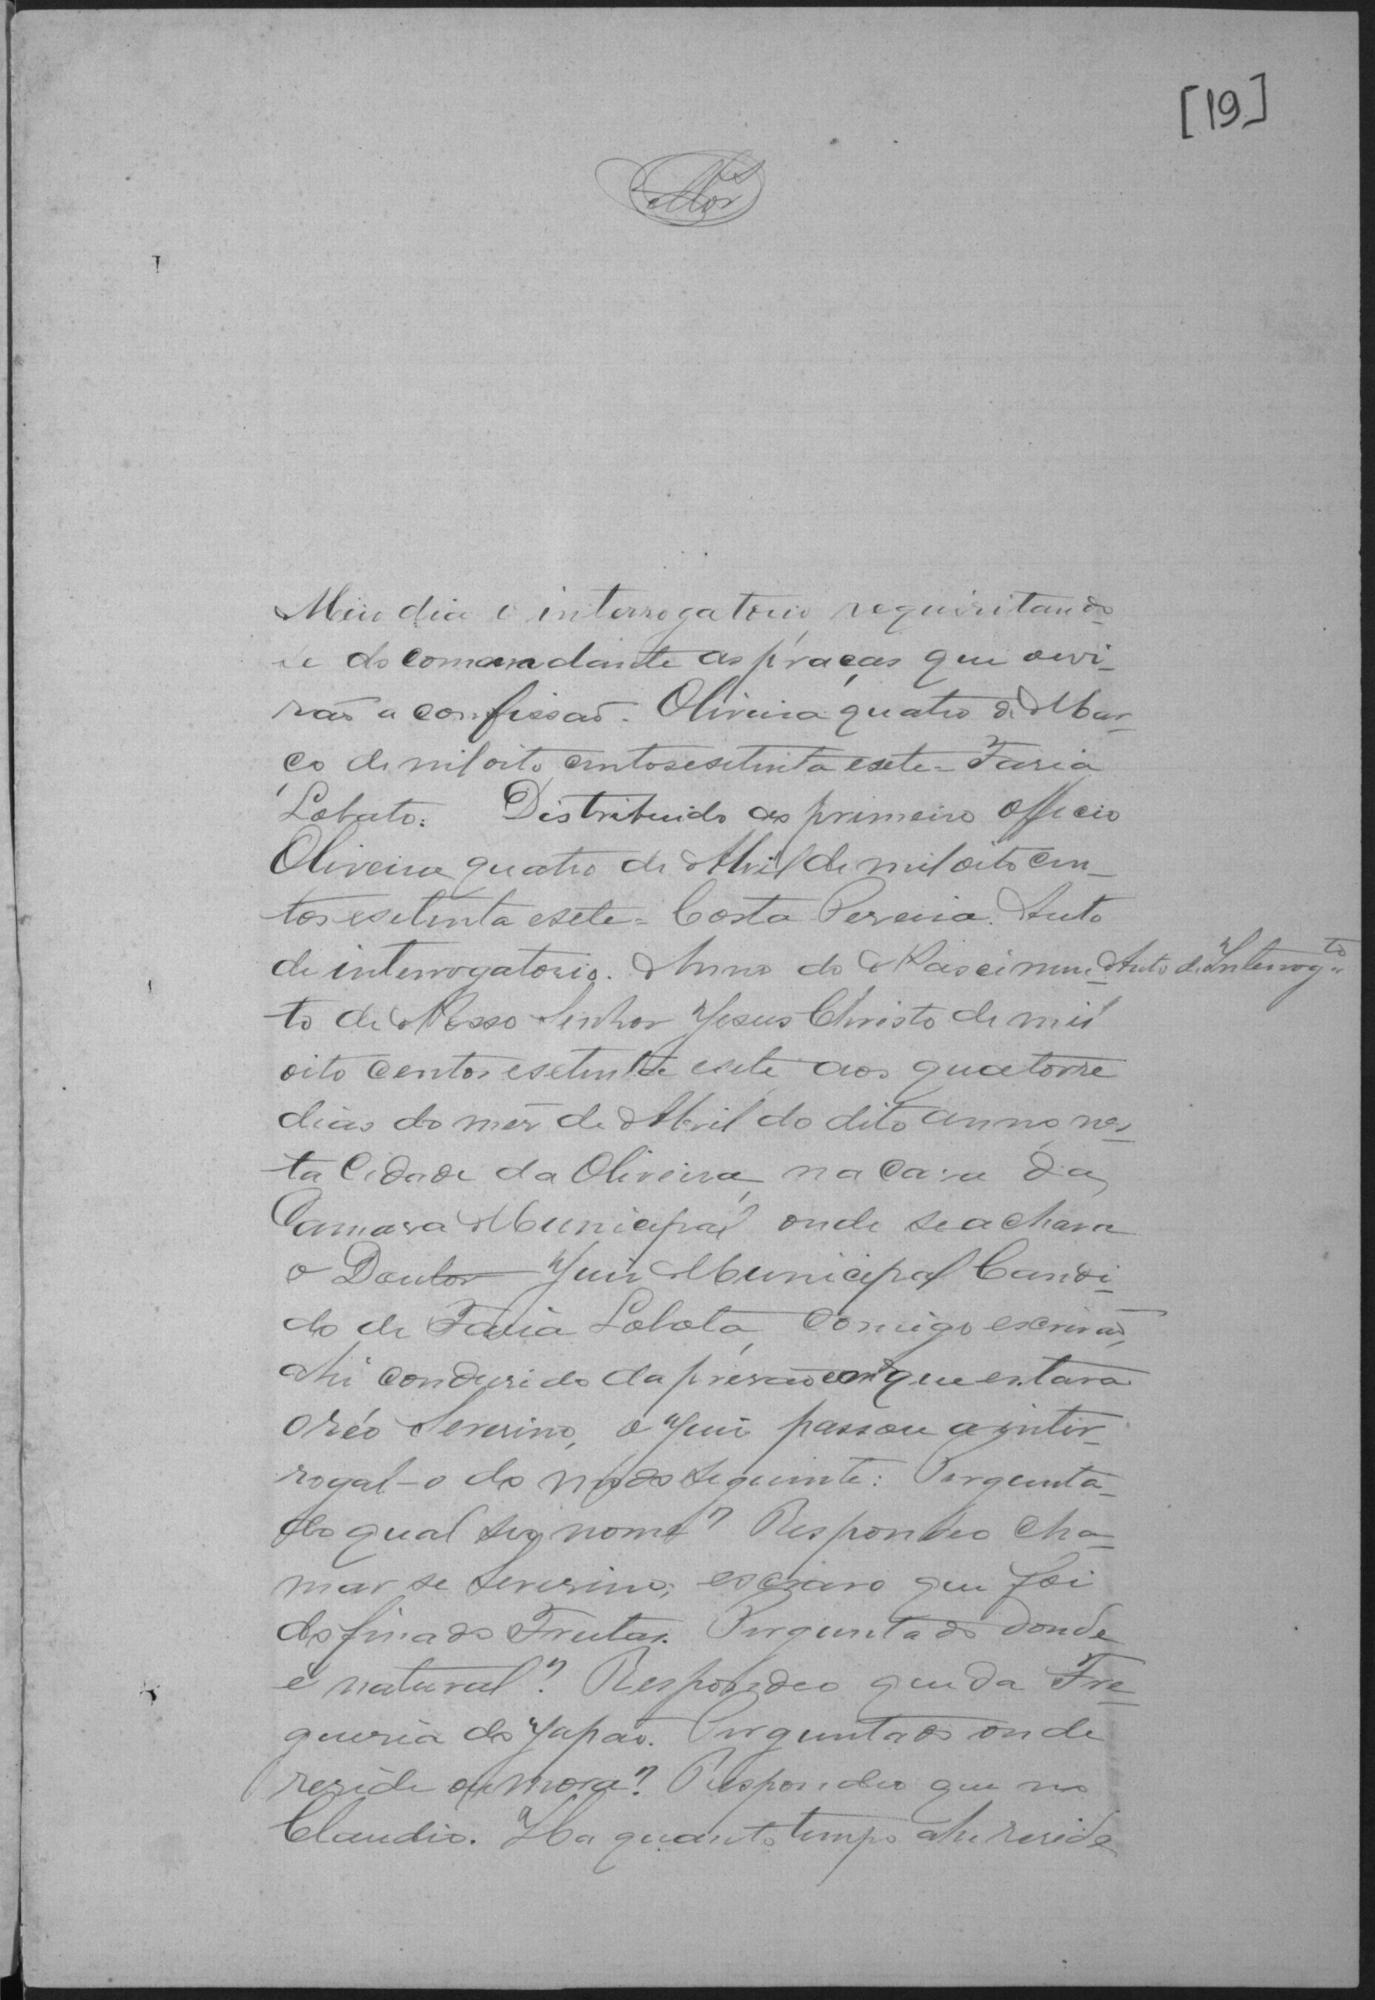 [19]
Meio dia o interrogatorio requisitando
se do commandante as praças que ouvi-
rão a confissão. Oliveira quatro de Mar-
ço de mil oito centos e setenta e sete = Faria
Lobato. Distribuido ao primeiro officio
Oliveira quatro de Abril de mil oito cen-
tos e setenta e sete = Costa Pereira. Auto
de interrogatorio. Anno do Nascimen-
Auto de Interrog.to
to de Nosso Senhor Jesus Christo de mil
oito centos e setenta e sete aos quatorze
dias do mez de Abril do dito anno nes-
ta Cidade da Oliveira, na casa da
Camara Municipal onde se achava
o Doutor Juiz Municipal Candi-
do de Faria Lobato, comigo escrivão,
ahi conduzido da prisão em que estava
o réo Severino, o Juiz passou a inter-
rogal-o do modo seguinte: Pergunta-
do qual seu nome? Respondeo cha-
mar se Severino, escravo que foi
do finado Freitas. Perguntado donde
é natural? Respondeo que da Fre-
guesia do Japão. Perguntado onde
reside ou mora? Respondeo que no
Claudio. Ha quanto tempo ahi reside